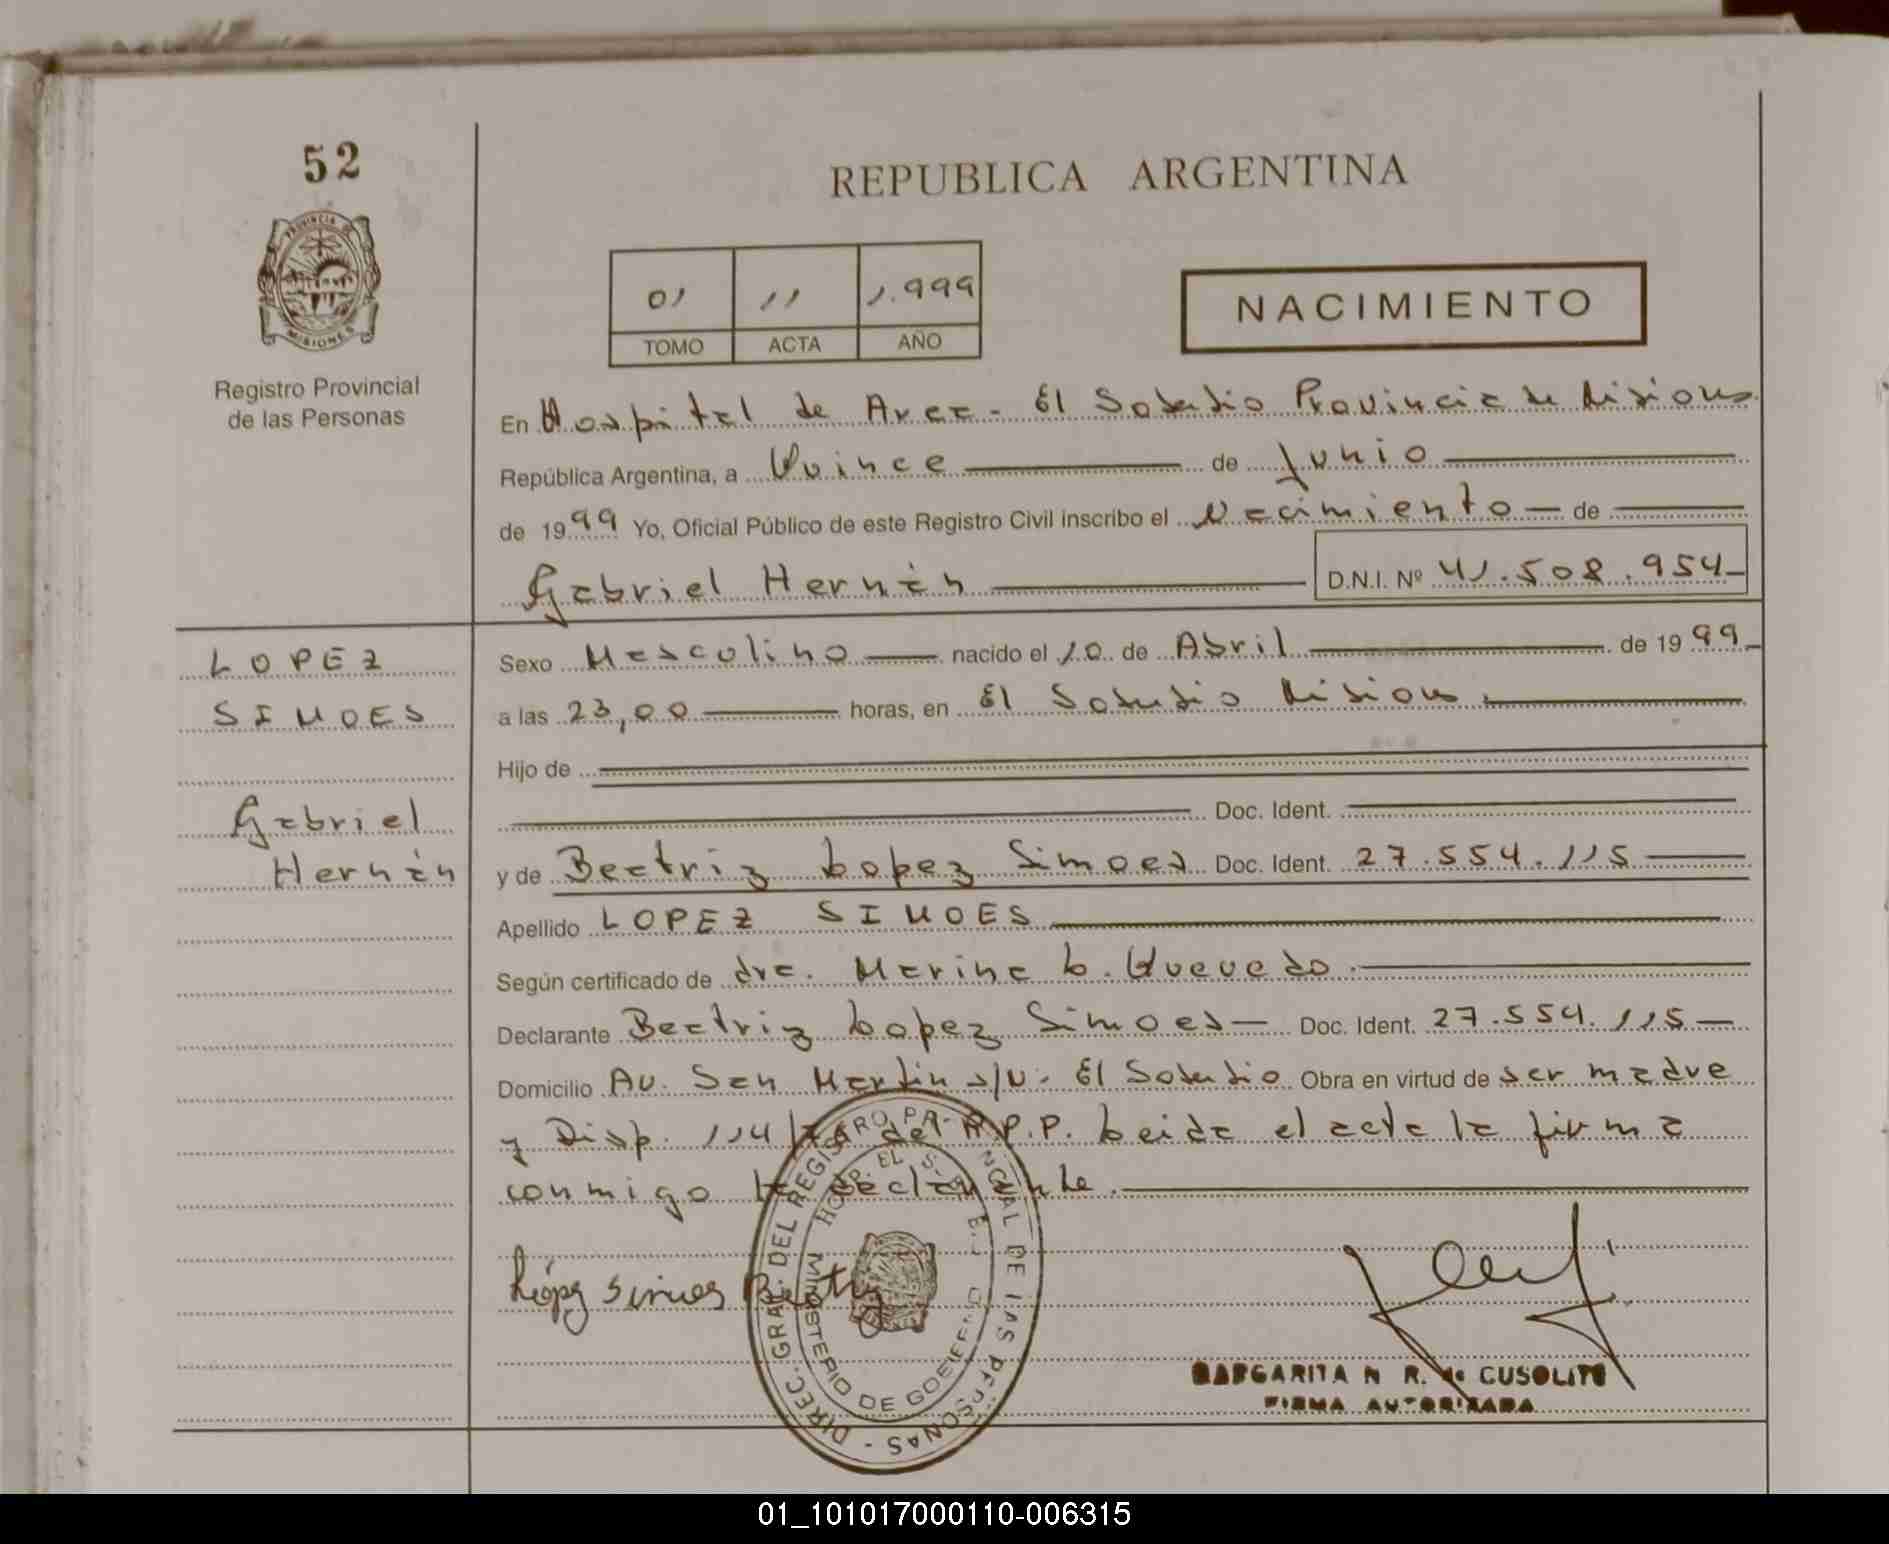 52
REPUBLICA ARGENTINA
PROVINCIA DE
MISIONES
Registro Provincial
de las Personas
01 11 1.999
TOMO ACTA AÑO
NACIMIENTO
En Hospital de Area - El Soberbio Provincia de Misiones
República Argentina, a Quince de Junio
de 1999 Yo, Oficial Público de este Registro Civil inscribo el Nacimiento de
Gabriel Hernán D.N.I. Nº 41.508.954
LOPEZ
SIMOES
Gabriel
Hernán
Sexo Masculino nacido el 10 de Abril de 1999
a las 23,00 horas, en El Soberbio Misiones.
Hijo de
Doc. Ident.
y de Beatriz Lopez Simoes Doc. Ident. 27.554.115
Apellido LOPEZ SIMOES
Según certificado de dra. Marina L. Quevedo.
Declarante Beatriz Lopez Simoes Doc. Ident. 27.554.115
Domicilio Av. San Martin s/N. El Soberbio Obra en virtud de ser madre
y Disp. 114/ de R.P.P. Leida el acta la firma
conmigo la declarante.
López Simoes Beatriz
DIREC. GRAL. DEL REGISTRO PROVINCIAL DE LAS PERSONAS -
MINISTERIO DE GOBIERNO
HOSP. EL S.
MARGARITA N R. de CUSOLITO
FIRMA AUTORIZADA
01_101017000110-006315